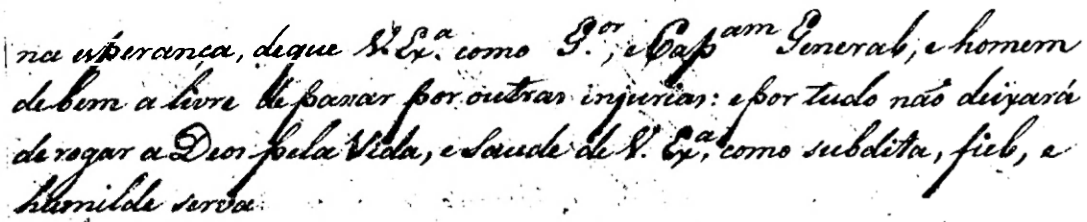 na esperança, deque V. Ex.ª como G.or, e Cap.am General, e homem
debem a livre de passar por outras injurias: e por tudo não deixará
de rogar a Deos pela Vida, e Saude de V. Ex.ª, como subdita, fiel, e
humilde serva.